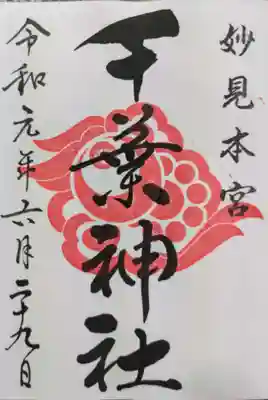 妙見本宮
千葉神社
令和元年六月二十九日